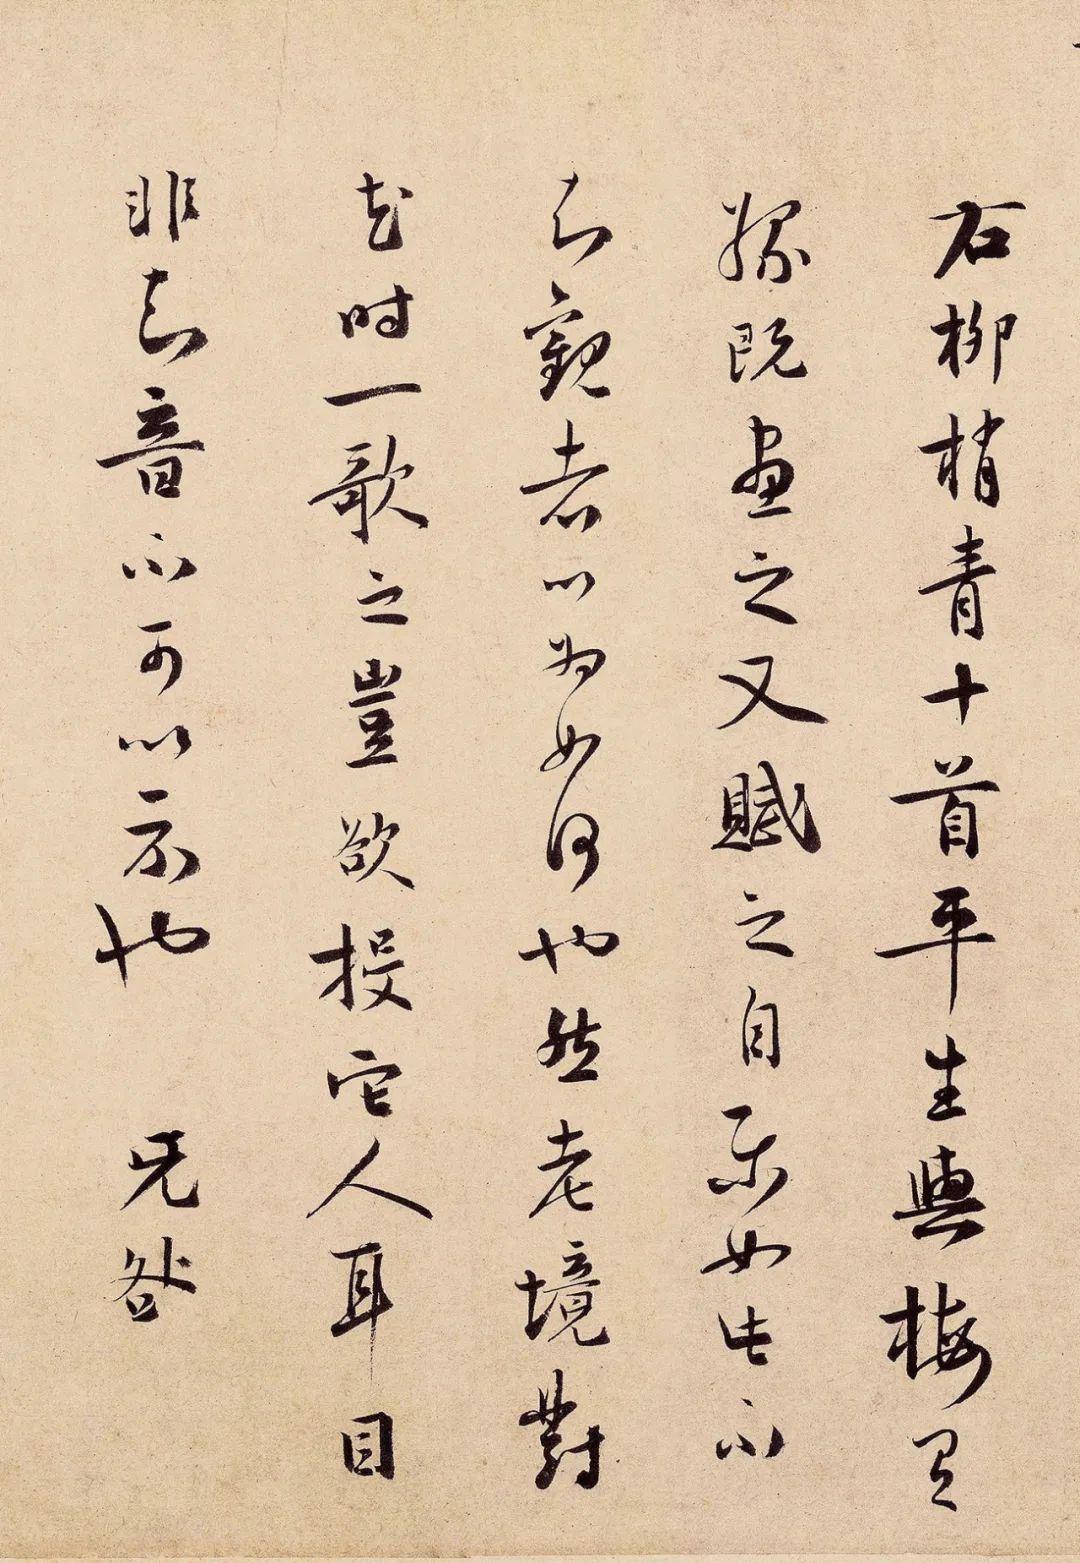 右柳梢青十首平生與梅有
緣既畫之又賦之自樂如此不
知觀者以為如何也然老境對
花時一歌之豈欲投它人耳目
非知音不可以示也 无咎